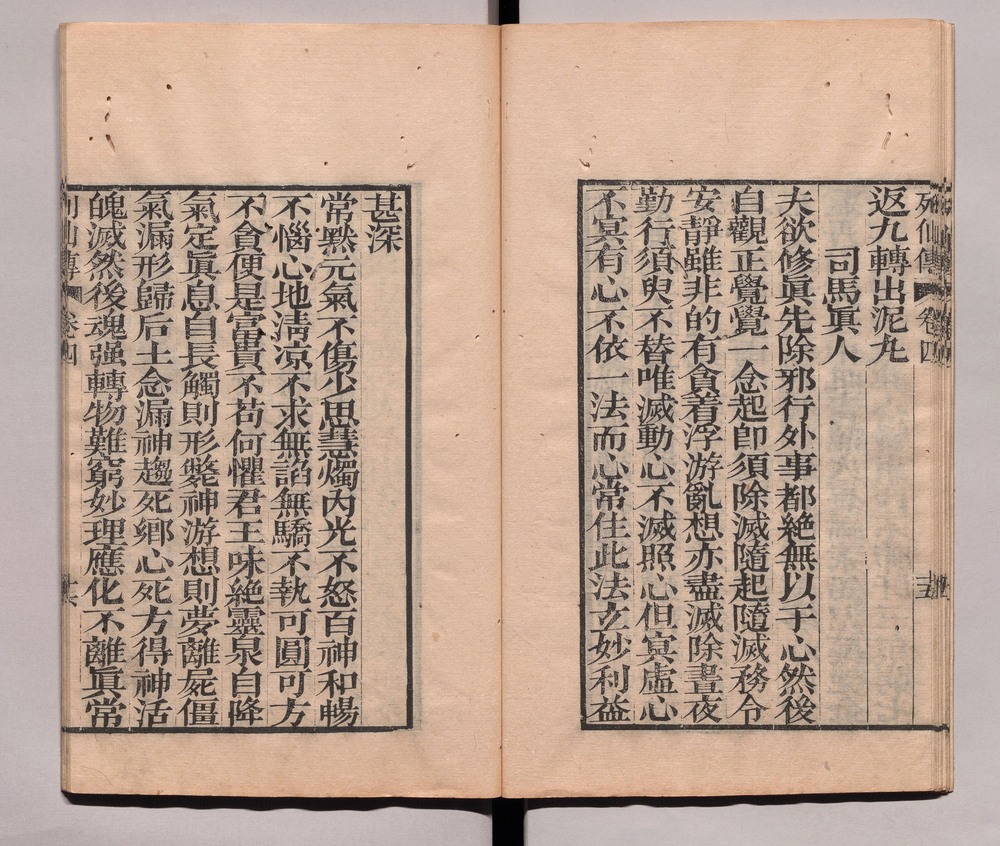 列仙傳 卷四 十五
返九轉出泥丸
司馬眞人
夫欲修眞先除邪行外事都絶無以干心然後
自觀正覺覺一念起卽須除滅隨起隨滅務令
安靜雖非的有貪着浮游亂想亦盡滅除晝夜
勤行須臾不替唯滅動心不滅照心但冥虛心
不冥有心不依一法而心常住此法玄妙利益
甚深
常黙元氣不傷少思慧燭内光不怒百神和暢
不惱心地淸凉不求無謟無驕不執可圓可方
不貪便是富貴不苟何懼君王味絶靈泉自降
氣定眞息自長觸則形斃神游想則夢離屍僵
氣漏形歸后土念漏神趨死鄉心死方得神活
魄滅然後魂强轉物難窮妙理應化不離眞常
列仙傳 卷四